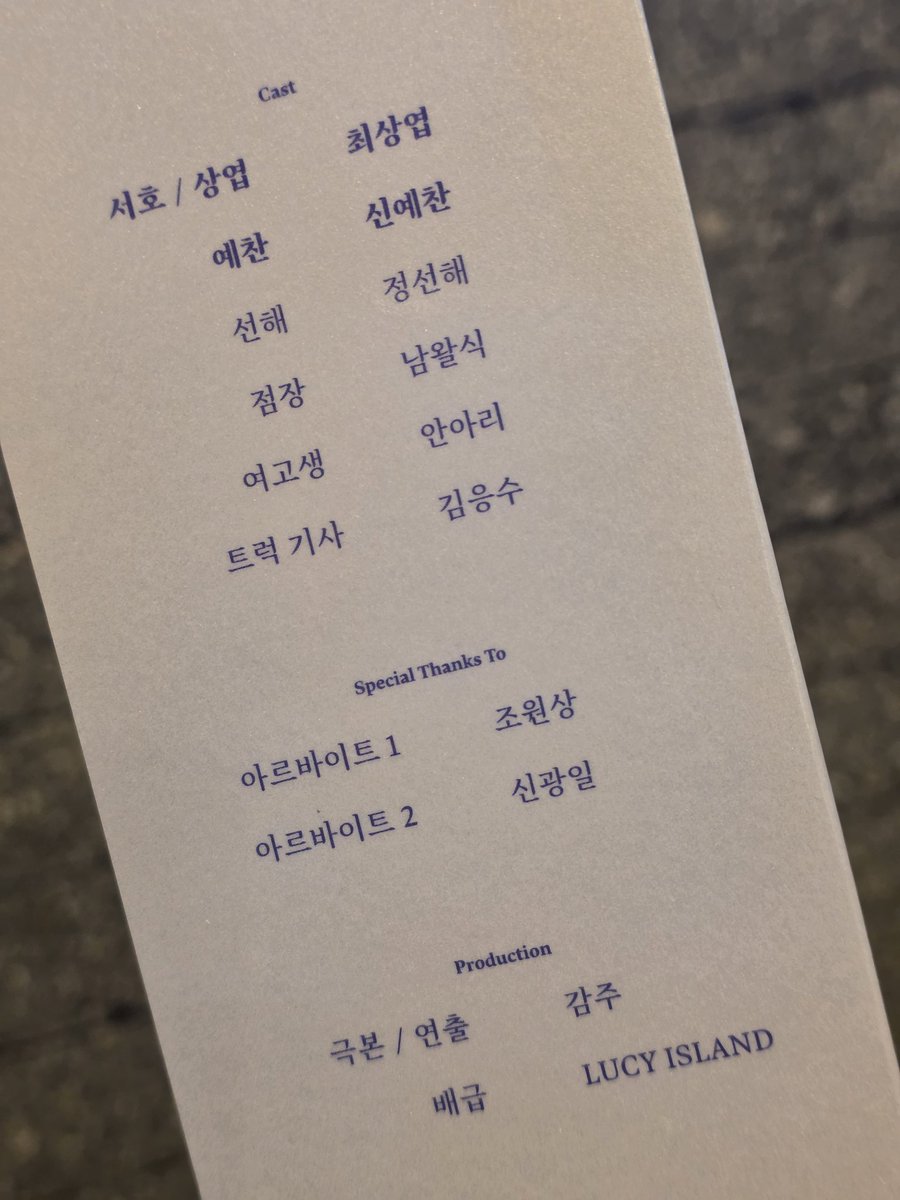 Cast
서호 / 상엽 최상엽
예찬 신예찬
선해 정선해
점장 남왈식
여고생 안아리
트럭 기사 김응수
Special Thanks To
아르바이트 1 조원상
아르바이트 2 신광일
Production
극본 / 연출 감주
배급 LUCY ISLAND